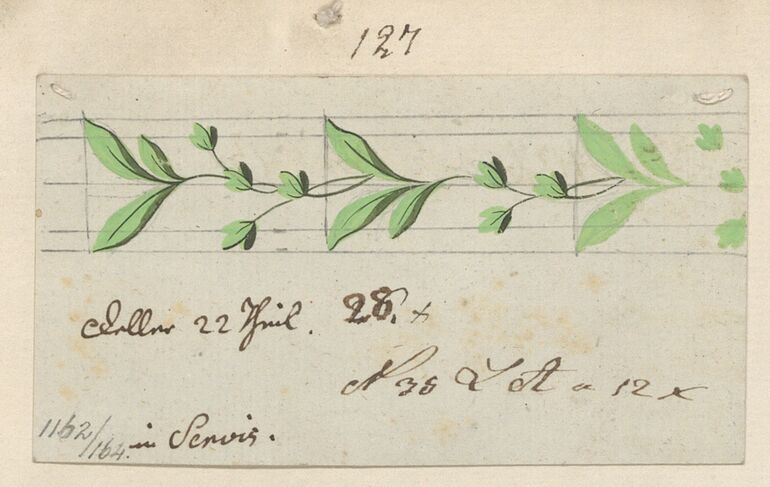 127
Teller 22 Theil. 28. x
N 35 L A a 12 x
1162/
1164. in Servis.